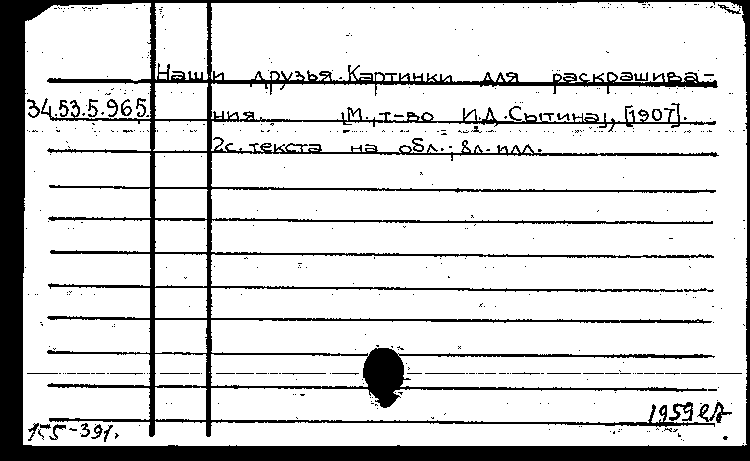 Наши друзья. Картинки для раскрашива-
34.53.5.965 ния. [М., т-во И.Д. Сытина], [1907].
2с. текста на обл.; 8л. илл.
1959
155-391.